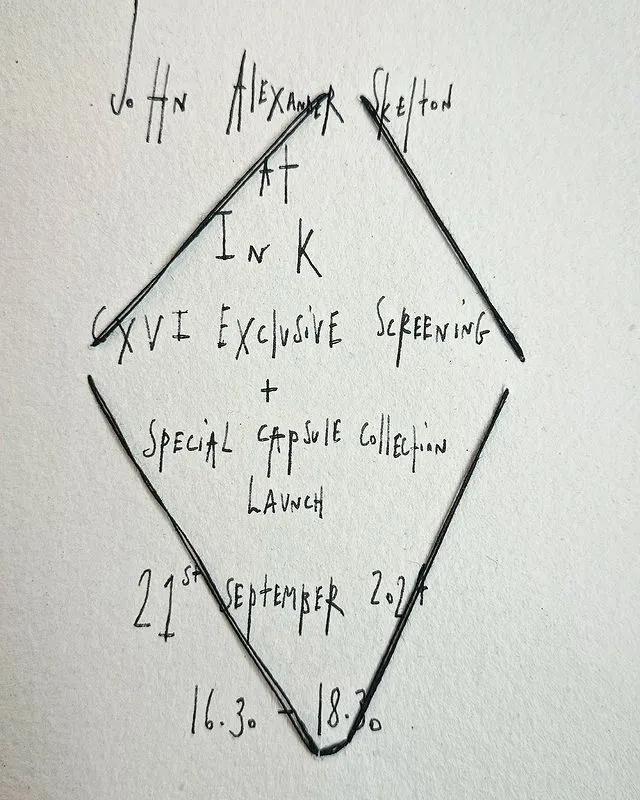 JoHn AlExANdER SkelTon
At
InK
CXVI ExclusivE ScREENiNG
+
SpEciAl cApsulE CollEctioN
LAuNcH
21st SEptEMBER 2024
16.30 - 18.30